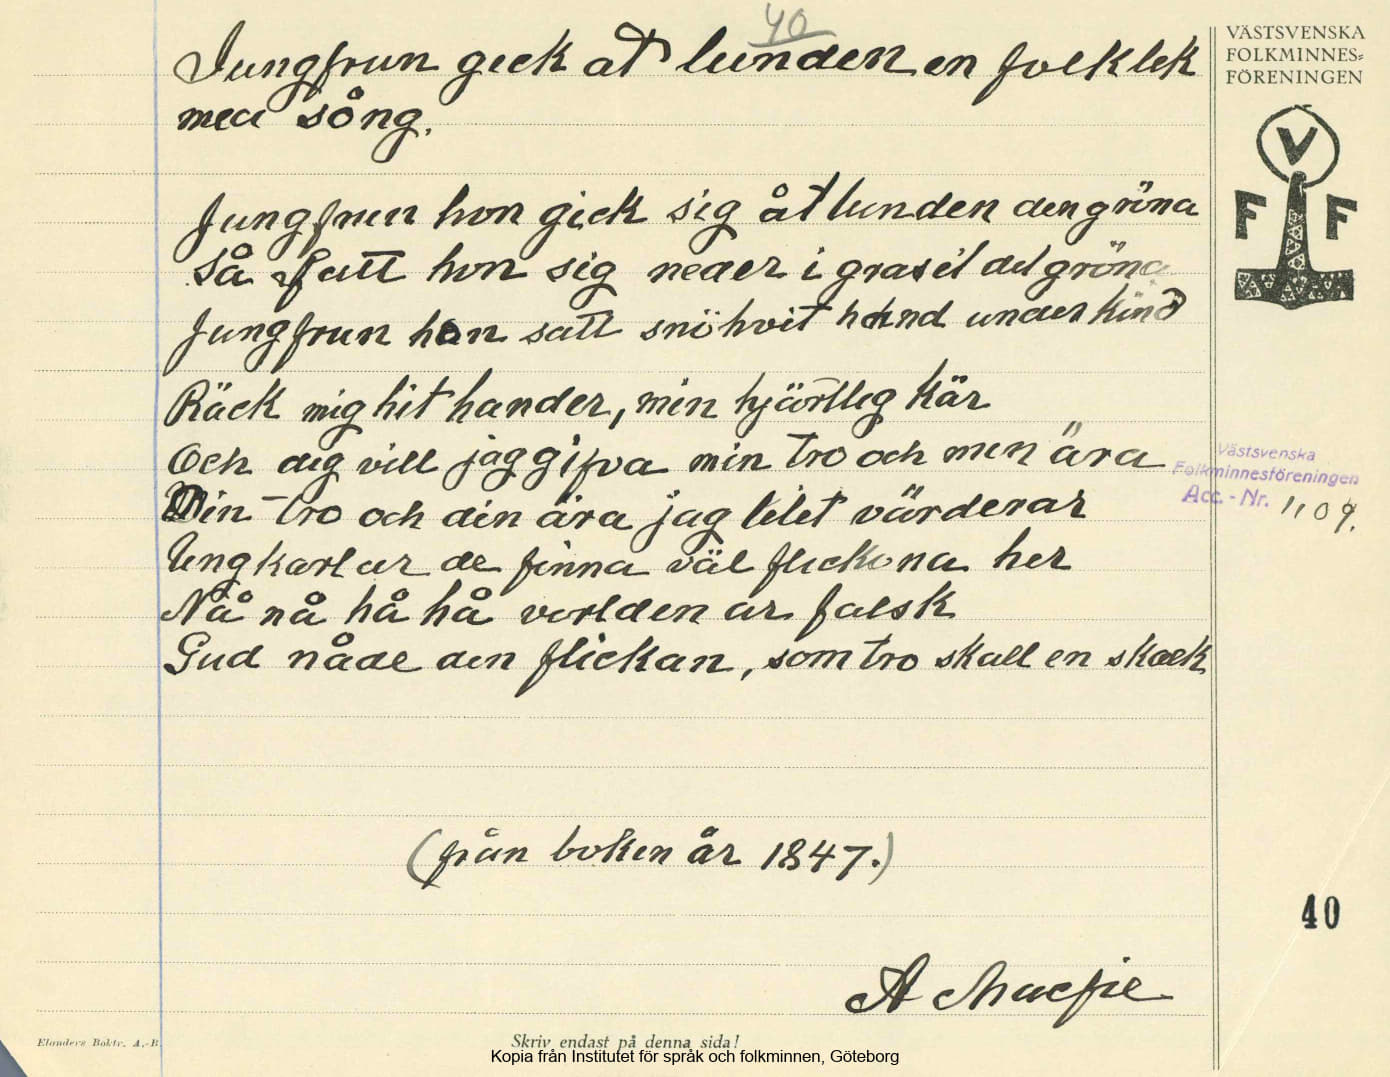 40
Jungfrun gick at lunden en folklek
med sång.
Jungfrun hon gick sig åt lunden den gröna
så satt hon sig neder i graset det gröna
Jungfrun hon satt snöhvit hand under kind
Räck mig hit hander, min hjärtleg kär
Och dig vill jag gifva min tro och men ära
Din tro och din ära jag litet värderar
Ungkarlar de finna väl flickona her
Nå nå hå hå verlden ar falsk
Gud nåde den flickan, som tro skall en skalk
(från boken år 1847.)
A Macfie
VÄSTSVENSKA
FOLKMINNES-
FÖRENINGEN
V
F F
Västsvenska
Folkminnesföreningen
Acc.-Nr. 1109.
40
Elanders Boktr. A.-B.
Skriv endast på denna sida!
Kopia från Institutet för språk och folkminnen, Göteborg